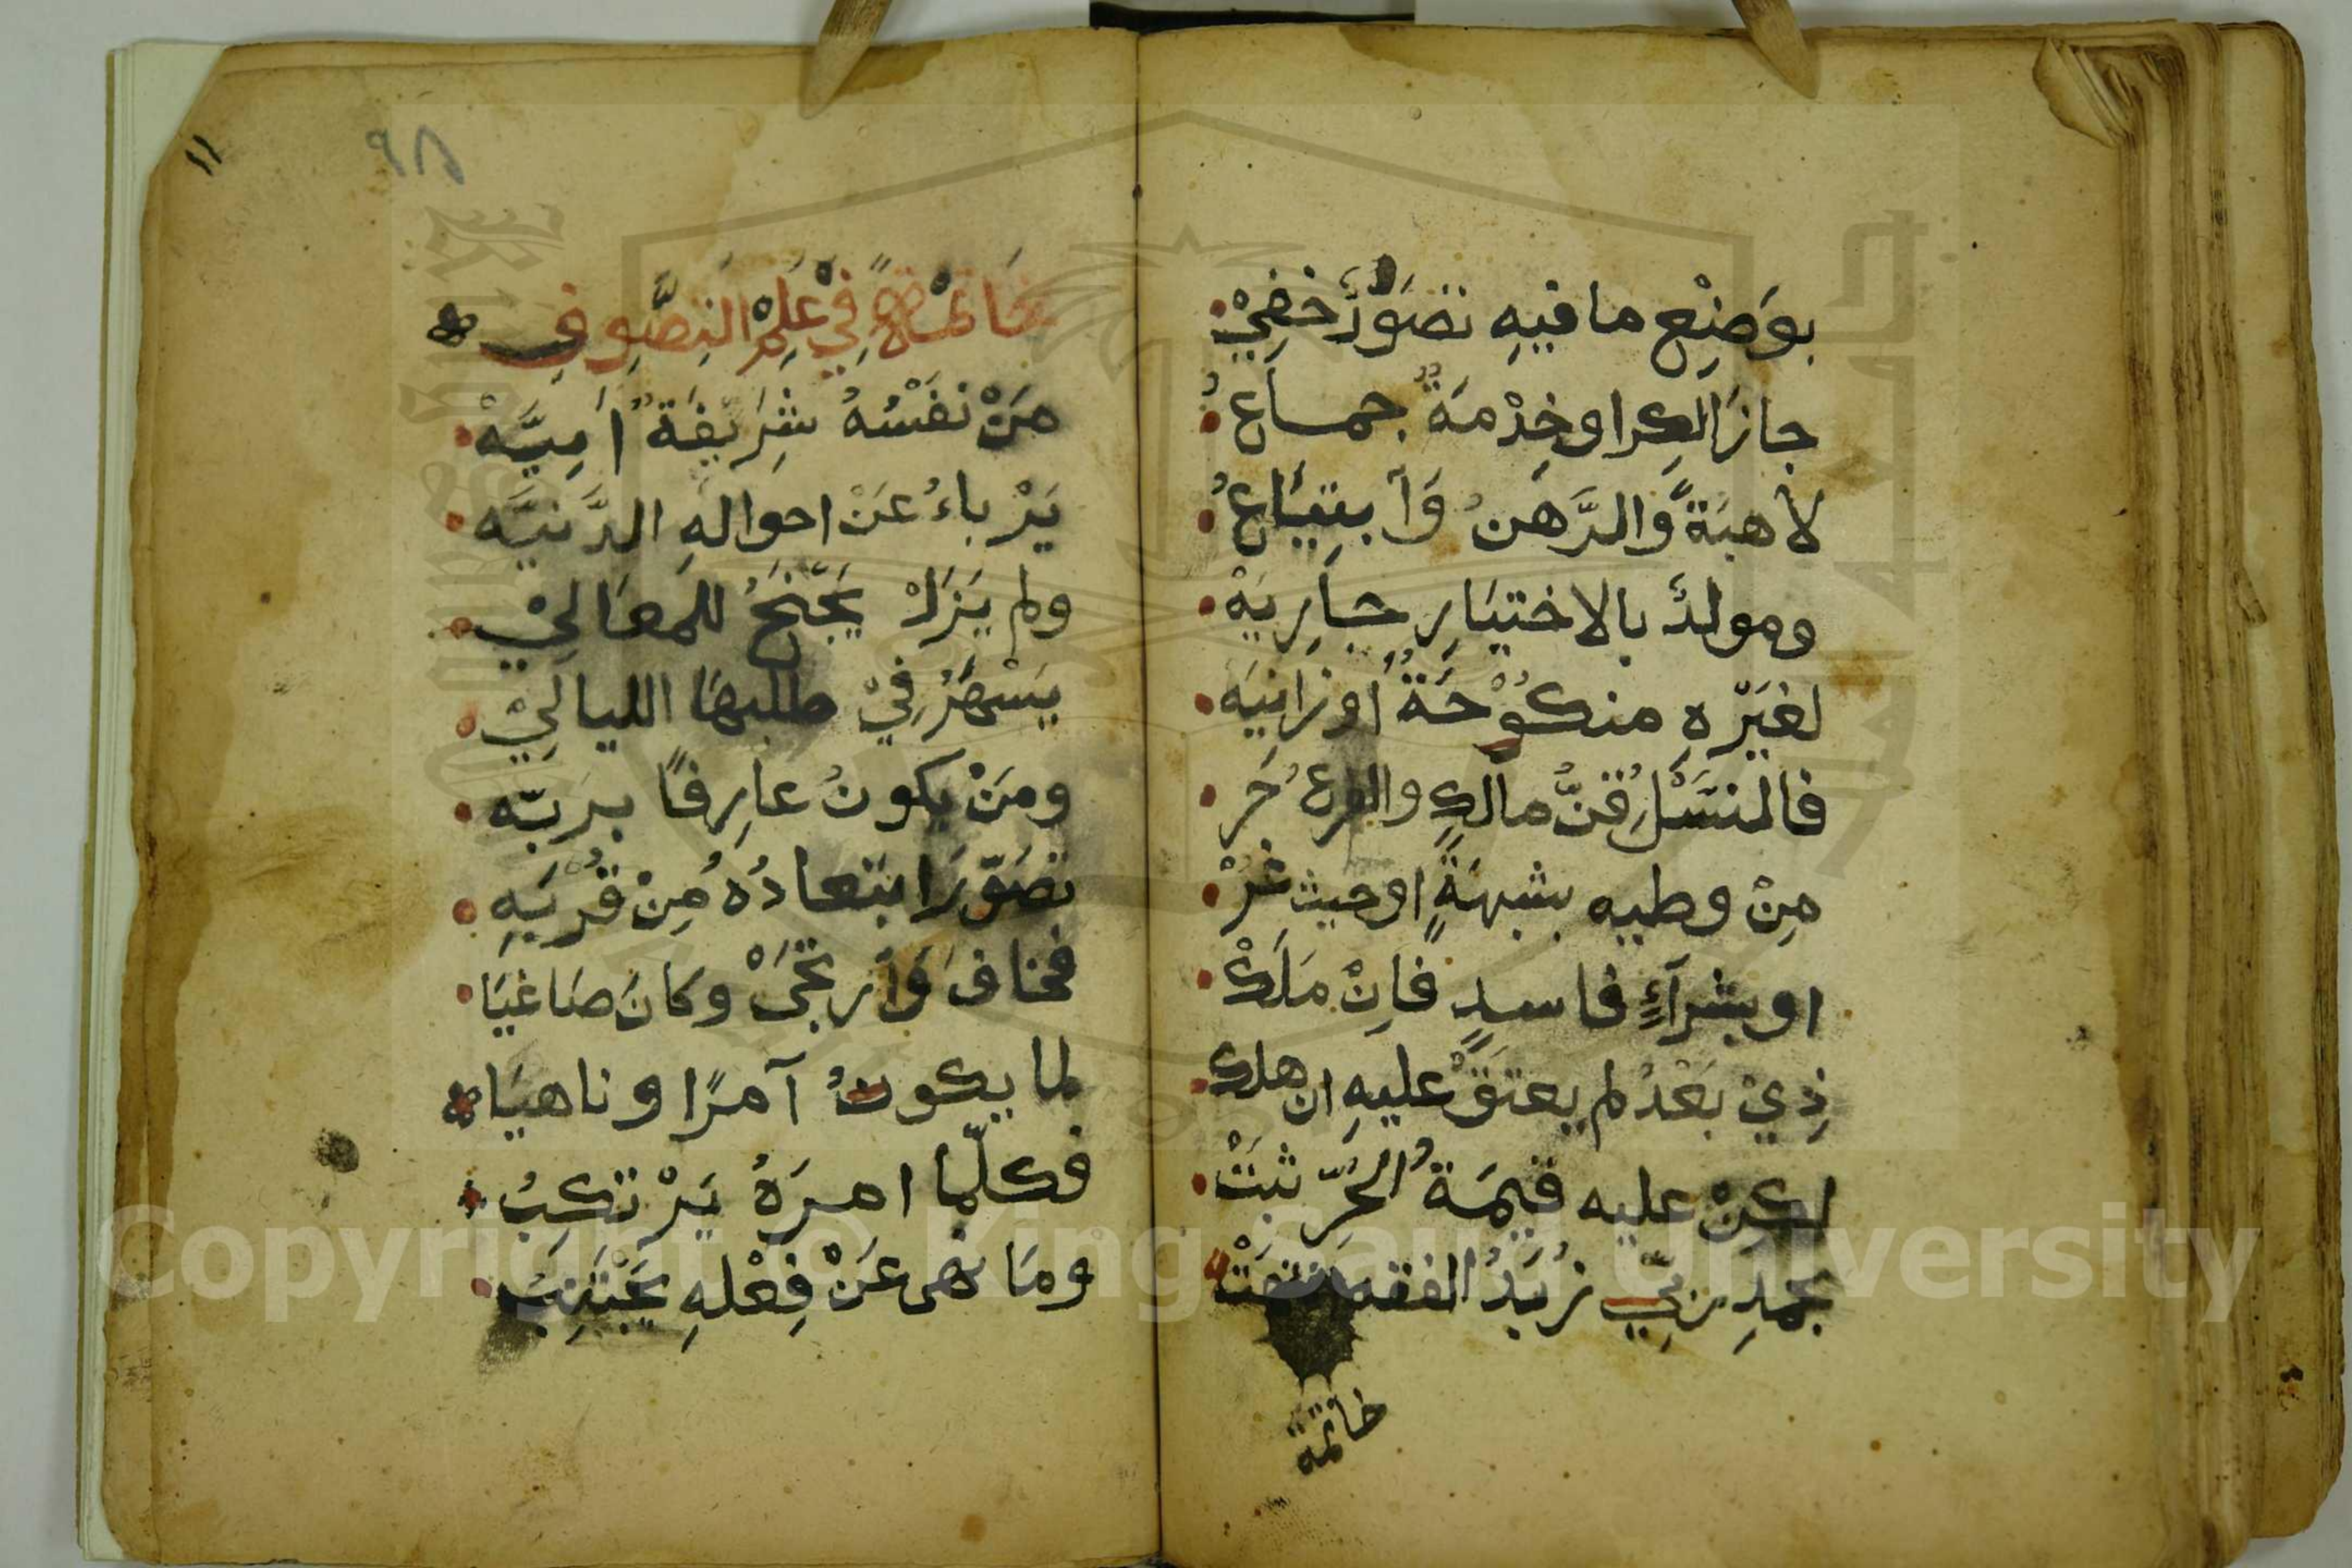 بوَضِعِ ما فيهِ تصَوُّرٌ خفِيْ
جازَ الكِرا وخِدْمَةٌ جماعُ
لا هبَةٌ وَّالرَّهَنُ وَآبتِيَاعُ
ومولدٌ بالاختيَارِ جارِيَهْ
لغيَرْهِ منكُوْحَةً اوزانيَه
فالنسَّلُ قنُّ مالكٍ والفرعُ حَر
مِنْ وطيه بشبهةٍ اوحيث غُرْ
او بشرآءٍ فاسدٍ فاِنْ مَلَكْ
ذِيْ بَعْدُ لم يعتقَ عليهِ ان هلك
لكِنْ عليه قيمَةُ الحُرِّ ثبَتْ
بحمدِ ربّيْ زُبَدُ الفقه
خاتمة
١١
٩٨
خَاتمَةٌ فِيْ عِلمِ التصَّوِف
مَنْ نفَسْهُ شرِيَفةٌ اَبِيَّهْ
يَرْباءُ عَنْ احوالهِ الدَّنيَّه
ولم يَزَلْ يَجنَحُ للمعَالِيْ
يسَهْرُ فِيْ طلبهَا الليالِيْ
ومَنْ يكونُ عارِفاً برَبّه
تصَوّرَ ابتعادُهُ مِنْ قُرْبَهِ
فخافَ وَآرتجَىْ وكانَ صَاغيَا
لما يكونُ آمرًا وناهيَا
فكلّما امرَهُ يَرْتكِبُ
ومَا نهى عَنْ فِعْلهِ يَجْتَنِبُ
Copyright © King Saud University